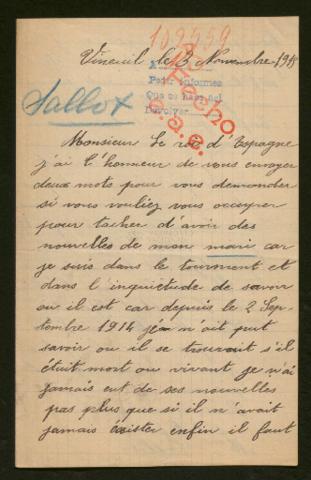 109959
Vineuil le 3 Novembre 1918
Pedir informes
Devolver
Hecho
e.a.e.
Sallot
Monsieur Le roi d'Espagne
j'ai l'honneur de vous envoyer
deux mots pour vous demander
si vous vouliez vous occuper
pour tacher d'avoir des
nouvelles de mon mari car
je suis dans le tourment et
dans l'inquiètude de savoir
ou il est car depuis le 2 Sep-
tembre 1914 je n'ait put
savoir ou il se trouvait s'il
était mort ou vivant je n'ai
jamais eut de ses nouvelles
pas plus que si il n'avait
jamais éxister enfin il faut